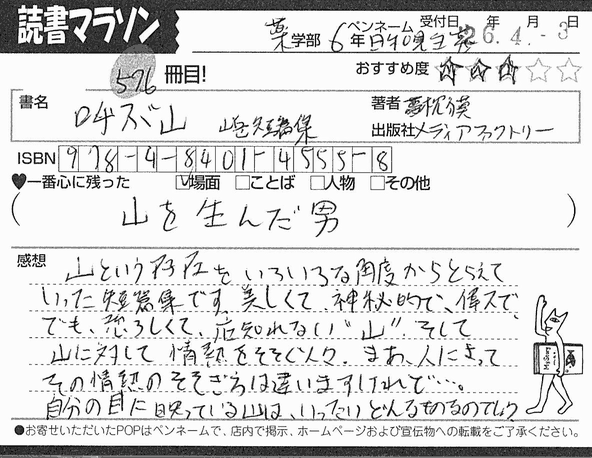 読書マラソン
薬学部 6年 ペンネーム 受付日 年 月 日
26.4.-3
576冊目!
おすすめ度 ★★★☆☆
書名 呼ぶ山 山岳短篇集
著者 夢枕獏
出版社 メディアファクトリー
ISBN 978-4-8401-4555-8
♥一番心に残った ☑場面 □ことば □人物 □その他
(山を生んだ男)
感想
山という存在をいろいろな角度からとらえて
いった短篇集です。美しくて、神秘的で、偉大で、
でも、恐ろしくて、底知れない“山”。そして
山に対して情熱をそそぐ人々。まあ、人によって
その情熱のそそぎ方は違いますけれど…。
自分の目に映っている山は、いったいどんなものなのでしょう?
●お寄せいただいたPOPはペンネームで、店内で掲示、ホームページおよび宣伝物への転載をご了承ください。